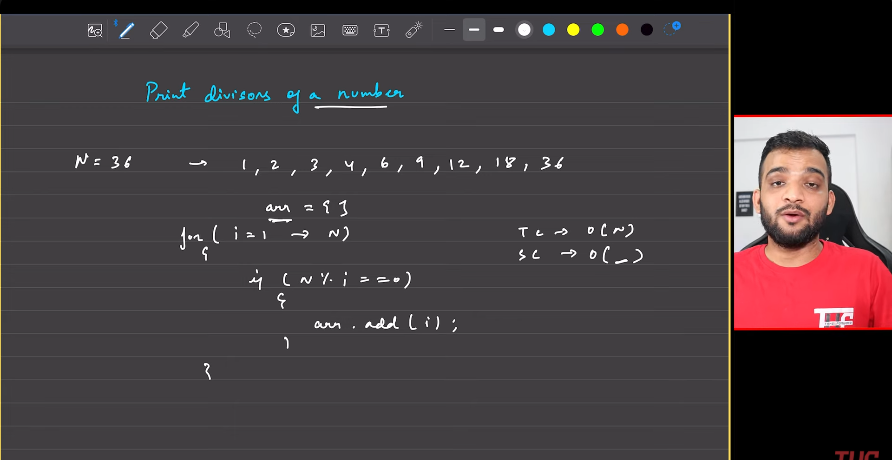 Print divisors of a number
N = 36 → 1, 2, 3, 4, 6, 9, 12, 18, 36
arr = { }
for ( i = 1 → N)
{
if ( N % i == 0)
{
arr . add ( i ) ;
}
}
TC → O(N)
SC → O( _ )
TUF